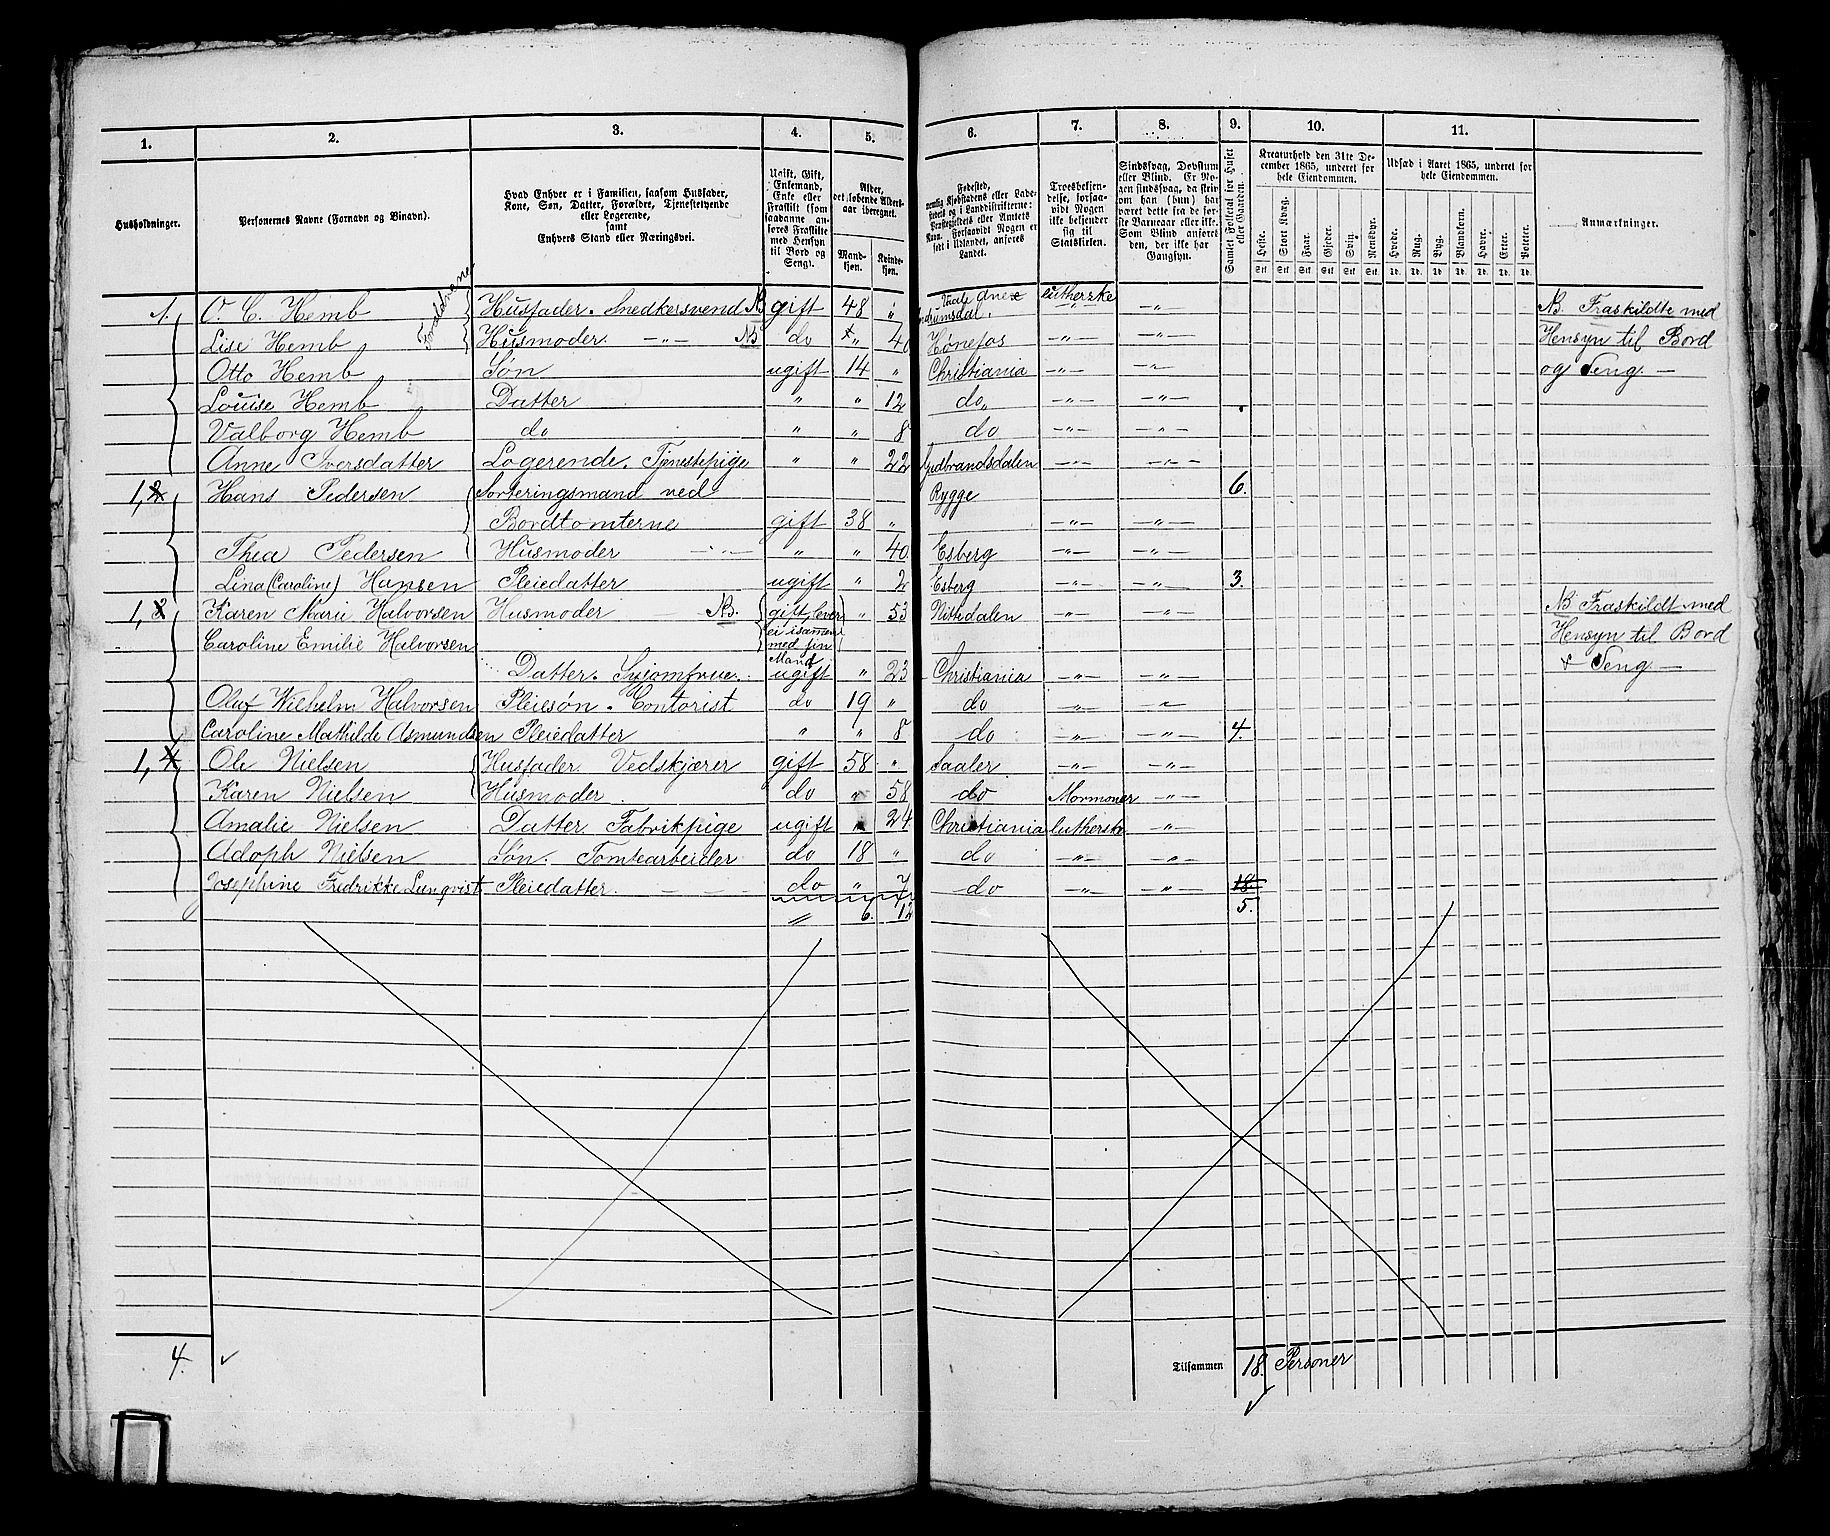 1. 2. 3. 4. 5. 6. 7. 8. 9. 10. 11.
Husholdninger.
Personernes Navne (Fornavn og Binavn).
Hvad Enhver er i Familien, saasom Husfader,
Kone, Søn, Datter, Forældre, Tjenestetyende
eller Logerende,
samt
Enhvers Stand eller Næringsvei.
Ugift, Gift,
Enkemand,
Enke eller
Fraskilt (som
saadanne an-
føres Fraskilte
med Hensyn
til Bord og
Seng).
Alder,
det løbende Alders-
aar iberegnet.
Mand-
kjøn.
Kvinde-
kjøn.
Fødested,
nemlig Kjøbstadens eller Lade-
stedets og i Landdistrikterne:
Præstegjeldets eller Amtets
Navn. Forsaavidt Nogen er
født i Udlandet, anføres
Landet.
Troesbekjen-
delse, forsaa-
vidt Nogen
ikke bekjender
sig til
Statskirken.
Sindssvag, Døvstum
eller Blind. Er No-
gen sindssvag, da skriv
om han (hun) har
været dette fra de før-
ste Barneaar eller ikke.
Som Blind anføres
den, der ikke har
Gangsyn.
Samlet Folketal for Huset
eller Gaarden.
Kreaturhold den 31te De-
cember 1865, underet for
hele Eiendommen.
Heste. Stort Kvæg. Faar. Gjeder. Svin. Rensdyr.
Stk. Stk. Stk. Stk. Stk. Stk.
Udsæd i Aaret 1865, underet for
hele Eiendommen.
Hvede. Rug. Byg. Blandkorn. Havre. Erter. Poteter.
Td. Td. Td. Td. Td. Td. Td.
Anmærkninger.
Forældrene
1. O. C. Hemb Husfader. Snedkersvend NB gift 48 " lutherske — " — NB Fraskildte med
Lise Hemb Husmoder. — " — NB do " 40 Hønefos — " — — " — Hensyn til Bord
Otto Hemb Søn ugift 14 " Christiania — " — — " — og Seng. —
Louise Hemb Datter " " 12 do — " — — " —
Valborg Hemb do " " 8 do — " — — " —
Anne Iversdatter Logerende. Tjenestepige " " 22 Gudbrandsdalen — " — — " —
1, 2 Hans Pedersen Sorteringsmand ved Rygge 6.
Bordtomterne gift 38 " — " — — " —
Thea Pedersen Husmoder — " — " " 40. Esberg — " — — " —
Lina (Caroline) Hansen Pleiedatter ugift " 2 Esberg — " — — " — 3.
1, 3 Karen Marie Halvorsen Husmoder NB. gift, lever " 53 Nittedalen — " — — " — NB Fraskildt med
Caroline Emilie Halvorsen ei isammen Hensyn til Bord
med sin
Mand
Datter. Syjomfrue. ugift " 23 Christiania — " — — " — & Seng. —
Oluf Wilhelm Halvorsen Pleiesøn. Contorist do 19 " do — " — — " —
Caroline Mathilde Asmundsen Pleiedatter " " 8 do — " — — " — 4.
1, 4 Ole Nielsen Husfader. Vedskjærer gift 58 " Saaler — " — — " —
Karen Nielsen Husmoder do " 58 do Mormoner — " —
Amalie Nielsen Datter. Fabrikpige ugift " 24 Christiania luthersk — " —
Adolph Nielsen Søn. Tomtearbeider do 18 " do — " — — " —
Josephine Fredrikke Lunqvist Pleiedatter. — — do " 7 do — " — — " — 18.
" 6. 12 5.
4. Tilsammen 18. Personer